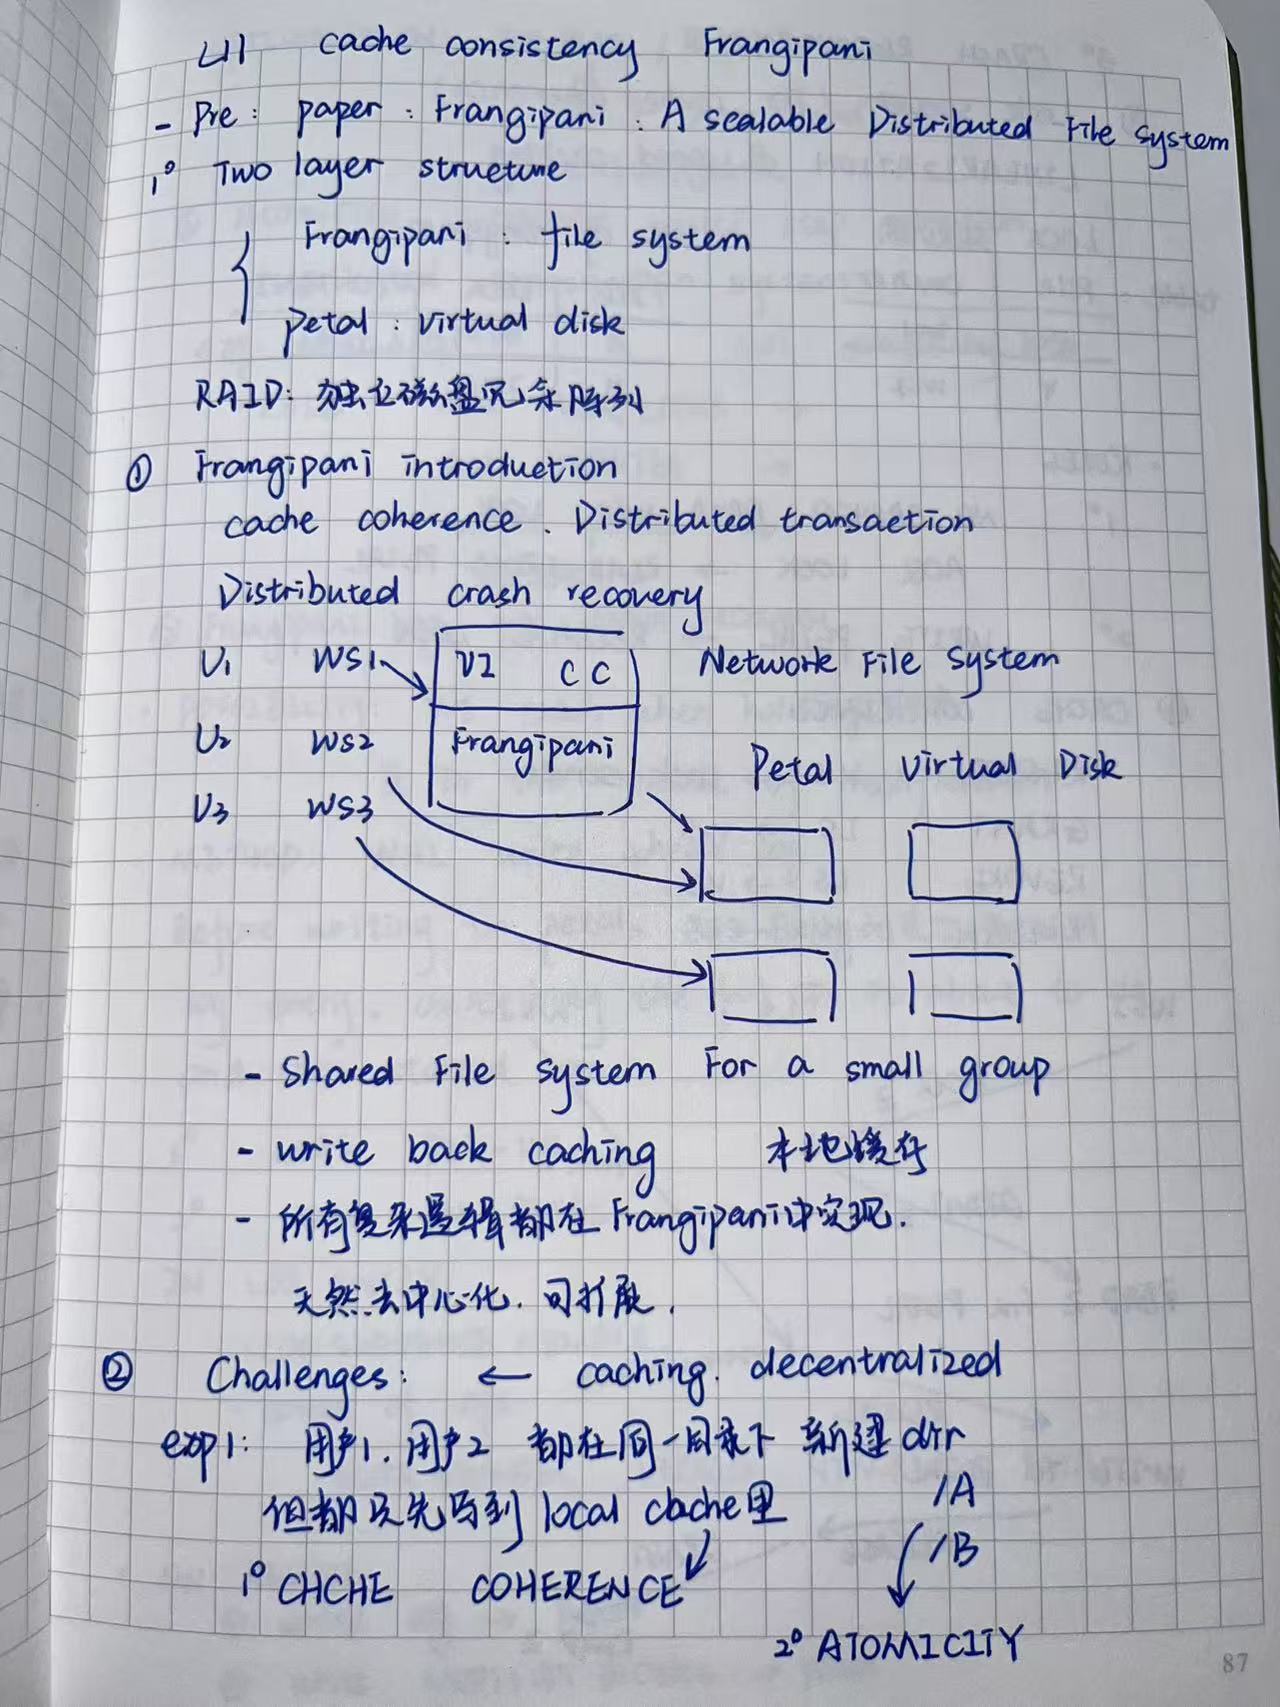 L11 cache consistency Frangipani
- Pre: paper: Frangipani: A scalable Distributed File system
1° Two layer structure
Frangipani: file system
Petal: virtual disk
RAID: 独立磁盘冗余阵列
① Frangipani introduction
cache coherence. Distributed transaction
Distributed crash recovery
U1 WS1 VI CC Network File System
U2 WS2 Frangipani Petal Virtual Disk
U3 WS3
- Shared File system For a small group
- write back caching 本地缓存
- 所有复杂逻辑都在Frangipani中实现.
天然去中心化. 可扩展.
② Challenges: ← caching. decentralized
exp1: 用户1. 用户2 都在同一目录下 新建dir
但都只先写到 local cache里 /A
/B
1° CHCHE COHERENCE
2° ATOMICITY
87